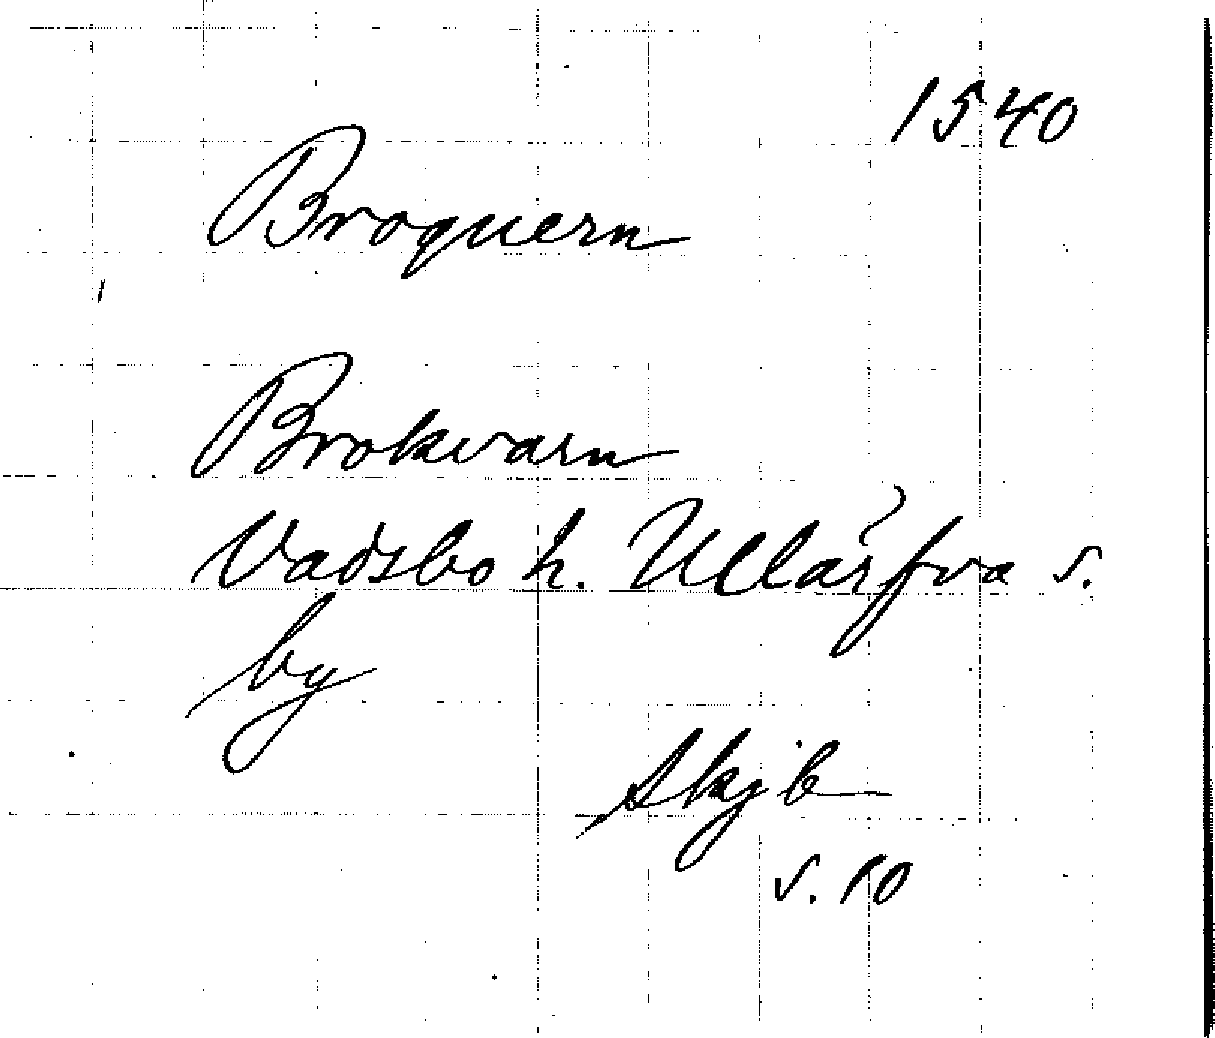 1540
Broquern
Brokvarn
Vadsbo h. Ullasfva s.
by
Skjb
s. 10